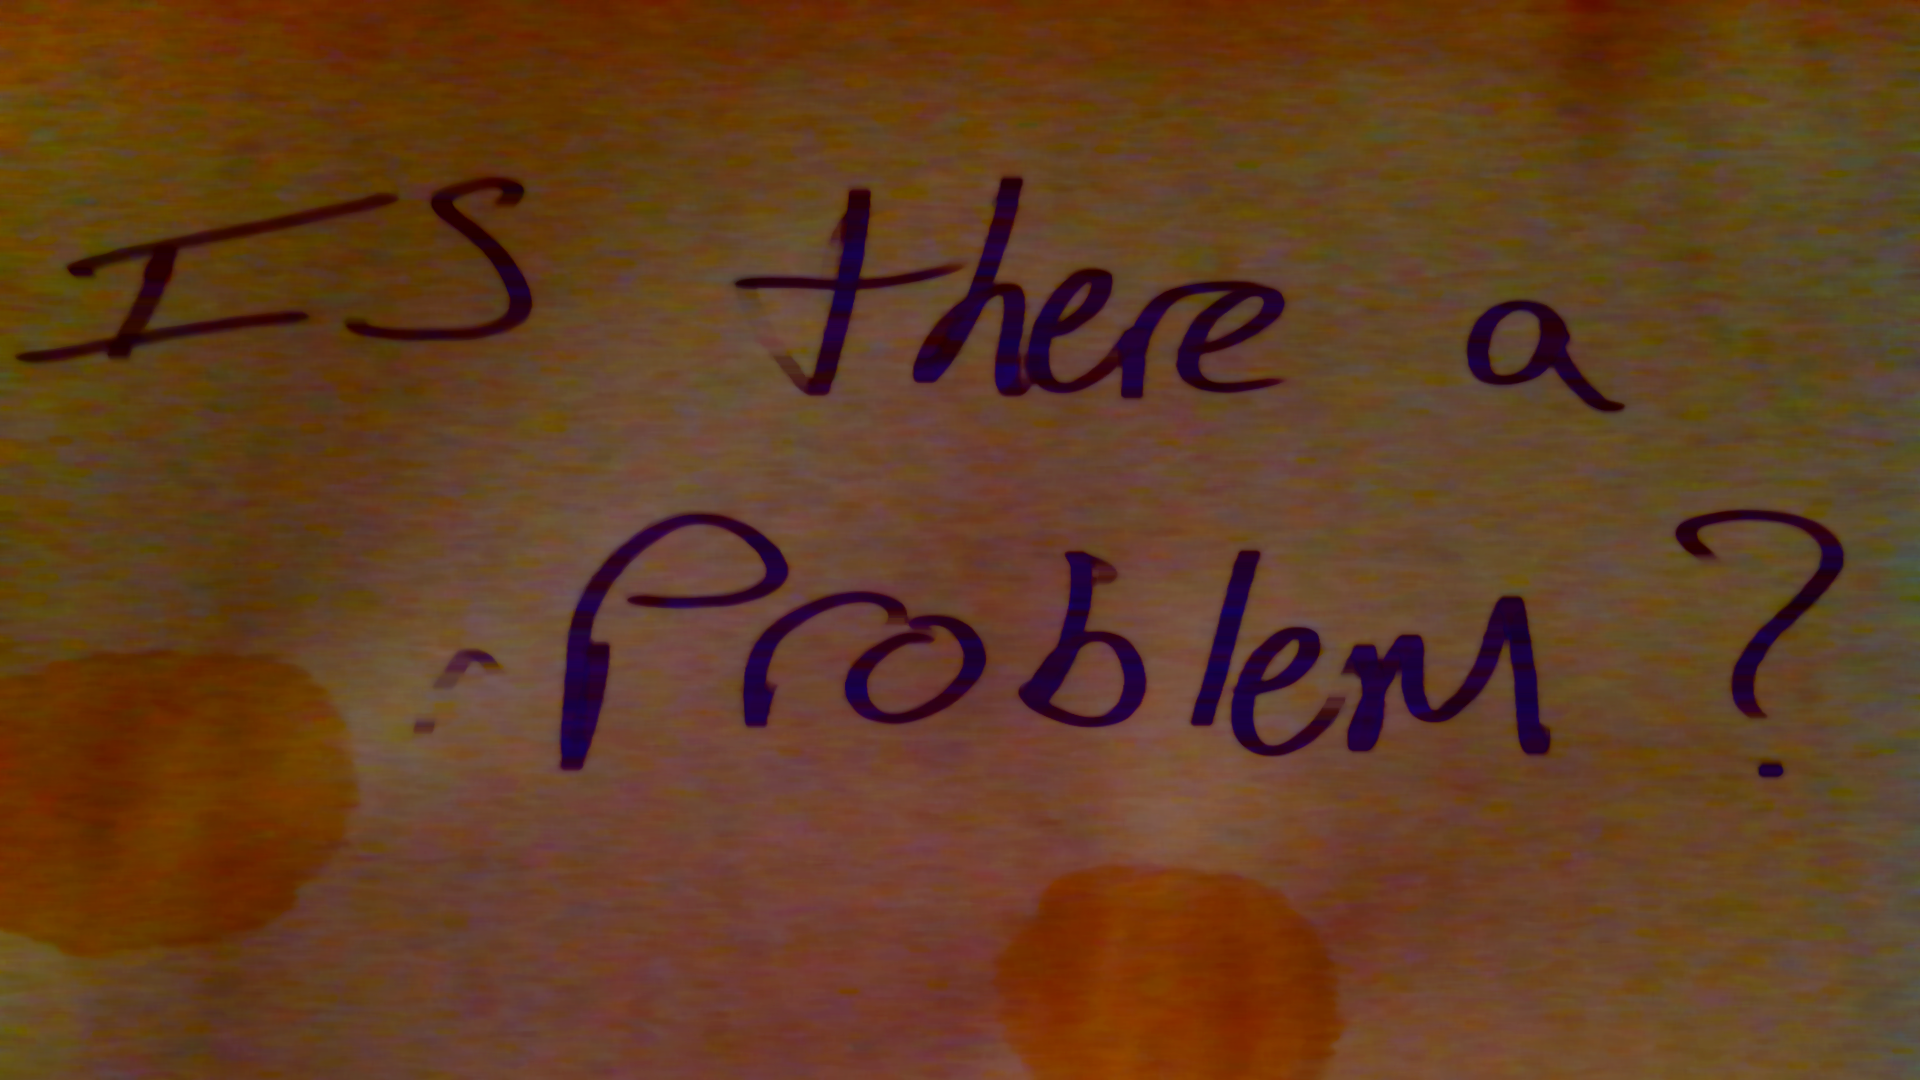 Is there a
Problem?